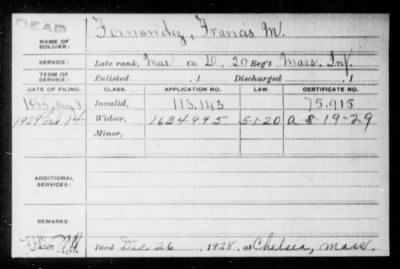 DEAD
NAME OF SOLDIER: Fernandez, Francis M.
SERVICE: Late rank, Mus Co. D, 20 Reg't Mass. Inf.
TERM OF SERVICE: Enlisted , 1 Discharged , 1
DATE OF FILING. CLASS. APPLICATION NO. LAW. CERTIFICATE NO.
1866, Aug 8 Invalid, 113,143 75,915
1929 14 Widow, 1634995 5-1-20 A 8-19-29
Minor,
ADDITIONAL SERVICES:
REMARKS:
Died Dec. 26, 1928, at Chelsea, Mass.